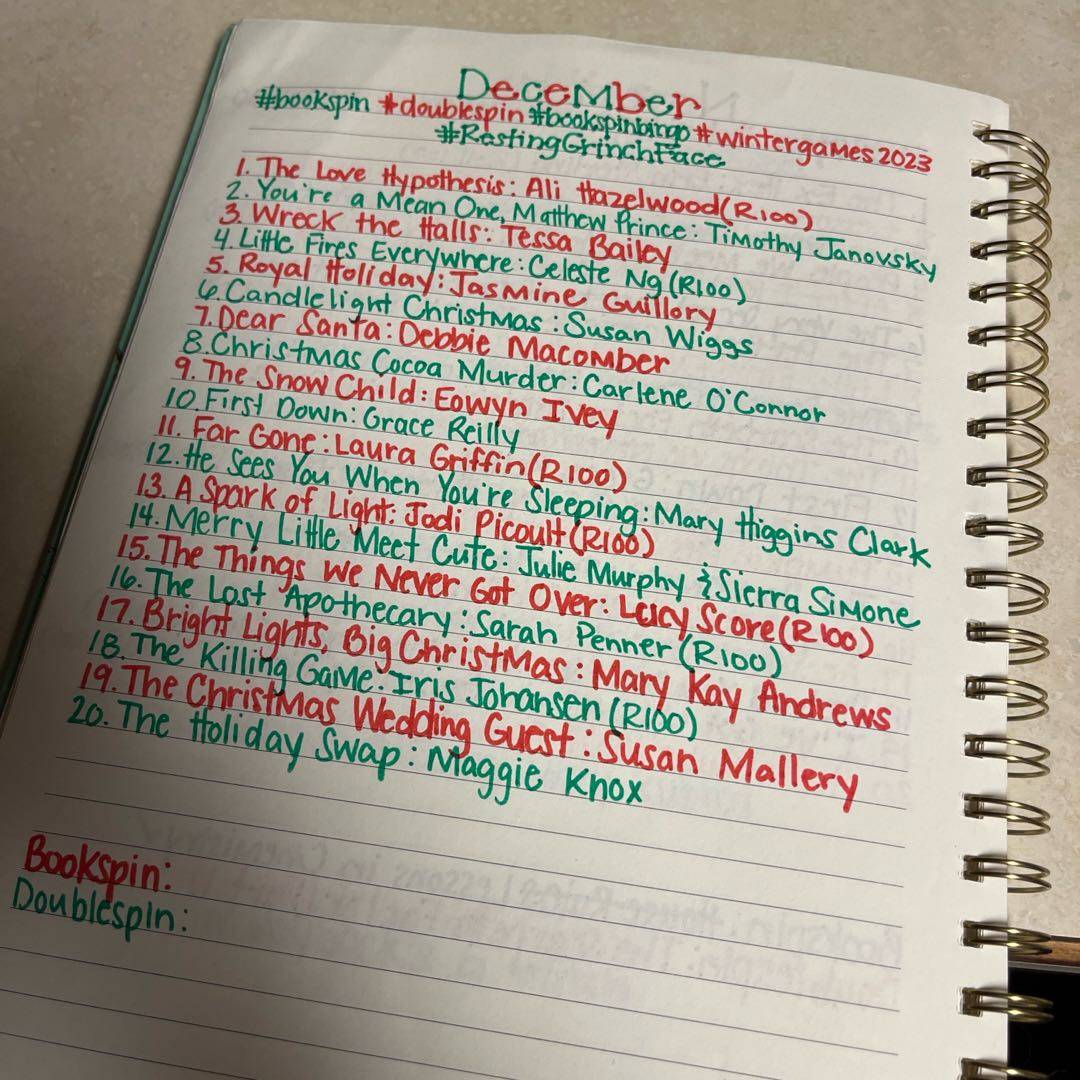 December
#bookspin #doublespin #bookspinbingo #wintergames2023
#RestingGrinchFace
1. The Love Hypothesis: Ali Hazelwood (R100)
2. You're a Mean One, Matthew Prince: Timothy Janovsky
3. Wreck the Halls: Tessa Bailey
4. Little Fires Everywhere: Celeste Ng (R100)
5. Royal Holiday: Jasmine Guillory
6. Candlelight Christmas: Susan Wiggs
7. Dear Santa: Debbie Macomber
8. Christmas Cocoa Murder: Carlene O'Connor
9. The Snow Child: Eowyn Ivey
10. First Down: Grace Reilly
11. Far Gone: Laura Griffin (R100)
12. He Sees You When You're Sleeping: Mary Higgins Clark
13. A Spark of Light: Jodi Picoult (R100)
14. Merry Little Meet Cute: Julie Murphy & Sierra Simone
15. The Things We Never Got Over: Lucy Score (R100)
16. The Lost Apothecary: Sarah Penner (R100)
17. Bright Lights, Big Christmas: Mary Kay Andrews
18. The Killing Game: Iris Johansen (R100)
19. The Christmas Wedding Guest: Susan Mallery
20. The Holiday Swap: Maggie Knox
Bookspin:
Doublespin: